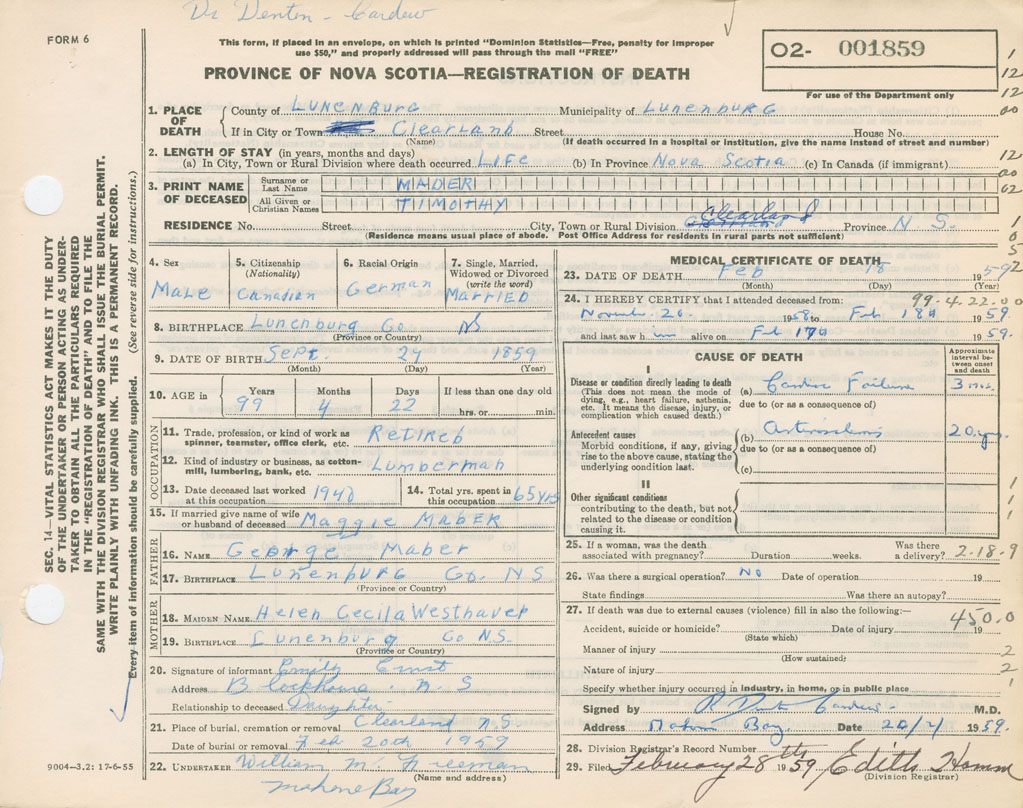 Dr Denton - Cardew
FORM 6
This form, if placed in an envelope, on which is printed "Dominion Statistics—Free, penalty for improper
use $50," and properly addressed will pass through the mail "FREE"
PROVINCE OF NOVA SCOTIA—REGISTRATION OF DEATH
02- 001859
For use of the Department only
1. PLACE OF DEATH { County of LUNENBURG Municipality of LUNENBURG
If in City or Town Clearland Street House No.
(Name) (If death occurred in a hospital or institution, give the name instead of street and number)
2. LENGTH OF STAY (in years, months and days)
(a) In City, Town or Rural Division where death occurred LIFE (b) In Province Nova Scotia (c) In Canada (if immigrant)
3. PRINT NAME OF DECEASED
Surname or Last Name MADER
All Given or Christian Names TIMOTHY
RESIDENCE No. Street City, Town or Rural Division Clearland Province N.S.
(Residence means usual place of abode. Post Office Address for residents in rural parts not sufficient)
SEC. 14—VITAL STATISTICS ACT MAKES IT THE DUTY
OF THE UNDERTAKER OR PERSON ACTING AS UNDER-
TAKER TO OBTAIN ALL THE PARTICULARS REQUIRED
IN THE "REGISTRATION OF DEATH" AND TO FILE THE
SAME WITH THE DIVISION REGISTRAR WHO SHALL ISSUE THE BURIAL PERMIT.
WRITE PLAINLY WITH UNFADING INK. THIS IS A PERMANENT RECORD.
Every item of information should be carefully supplied. (See reverse side for instructions.)
4. Sex
Male
5. Citizenship
(Nationality)
Canadian
6. Racial Origin
German
7. Single, Married,
Widowed or Divorced
(write the word)
MARRIED
8. BIRTHPLACE Lunenburg Co NS
(Province or Country)
9. DATE OF BIRTH Sept 24 1859
(Month) (Day) (Year)
10. AGE in { Years Months Days If less than one day old
99 4 22 hrs. or min.
OCCUPATION
11. Trade, profession, or kind of work as
spinner, teamster, office clerk, etc. Retired
12. Kind of industry or business, as cotton-
mill, lumbering, bank, etc. Lumberman
13. Date deceased last worked
at this occupation 1940
14. Total yrs. spent in
this occupation 65 yrs
15. If married give name of wife
or husband of deceased Maggie MADER
FATHER
16. NAME George Mader
17. BIRTHPLACE Lunenburg Co. NS
(Province or Country)
MOTHER
18. MAIDEN NAME Helen Cecila Westhaver
19. BIRTHPLACE Lunenburg Co N.S.
(Province or Country)
20. Signature of informant Emily Ernst
Address Blockhouse N.S
Relationship to deceased Daughter
21. Place of burial, cremation or removal Clearland NS
Date of burial or removal Feb 20th 1959
22. UNDERTAKER William M. Freeman
(Name and address)
Mahone Bay
9004—3.2: 17-6-55
MEDICAL CERTIFICATE OF DEATH
23. DATE OF DEATH Feb 18 1959
(Month) (Day) (Year)
99-4-22-00
24. I HEREBY CERTIFY that I attended deceased from:
November 20. 1958 to Feb 18th 1959.
and last saw him alive on Feb 17th 1959.
CAUSE OF DEATH
Approximate interval between onset and death
I
Disease or condition directly leading to death
(This does not mean the mode of
dying, e.g., heart failure, asthenia,
etc. It means the disease, injury, or
complication which caused death.)
(a) Cardiac Failure 3 mos.
due to (or as a consequence of)
Antecedent causes
Morbid conditions, if any, giving
rise to the above cause, stating the
underlying condition last.
(b) 20 yrs
due to (or as a consequence of)
(c)
II
Other significant conditions
contributing to the death, but not
related to the disease or condition
causing it.
25. If a woman, was the death
associated with pregnancy? Duration weeks. Was there
a delivery? 2-18-9
26. Was there a surgical operation? No Date of operation 19
State findings Was there an autopsy?
27. If death was due to external causes (violence) fill in also the following:—
450.0
Accident, suicide or homicide? Date of injury 19
(State which)
Manner of injury 2
(How sustained)
Nature of injury 2
Specify whether injury occurred in industry, in home, or in public place 1
Signed by R Denton Cardew M.D.
Address Mahone Bay Date 20/2/ 1959.
28. Division Registrar's Record Number
29. Filed February 28th 1959 Edith
(Division Registrar)